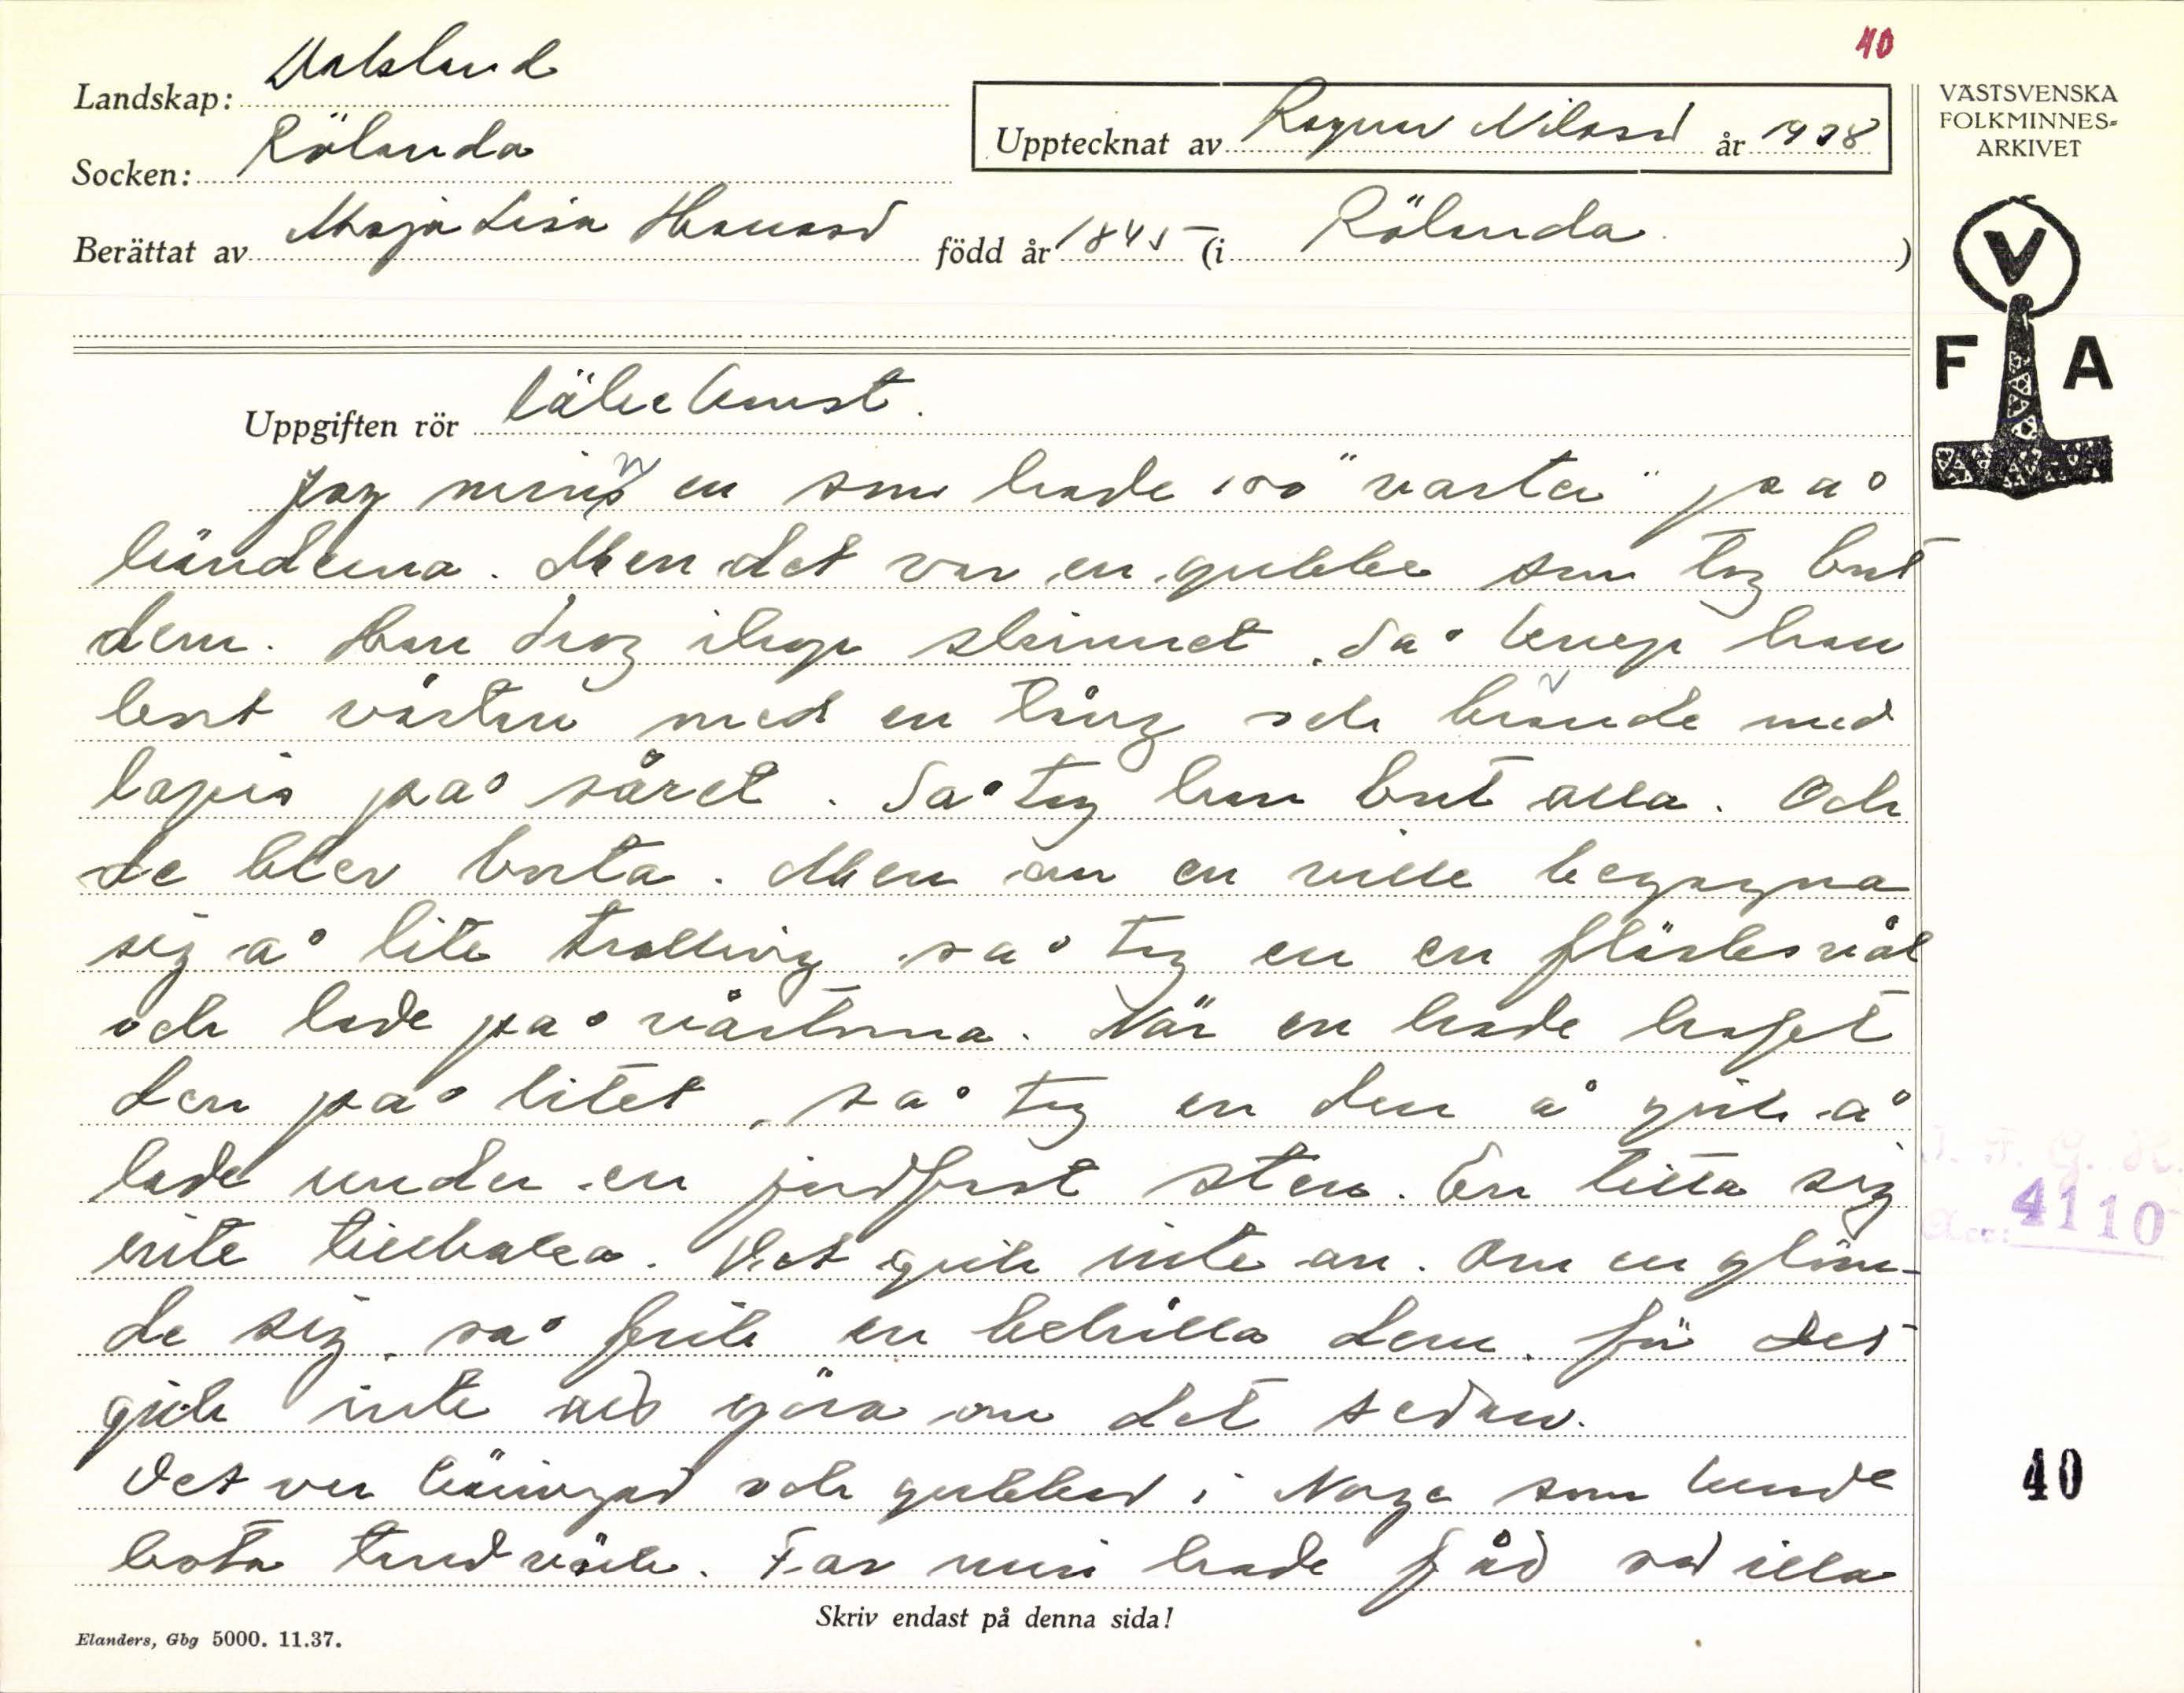 40
Landskap: Dalsland
Socken: Rölanda
Upptecknat av Ragnar Nilsson år 1938
Berättat av Maja Lisa Hansson född år 1845 (i Rölanda.)
VÄSTSVENSKA
FOLKMINNES-
ARKIVET
V
F A
Uppgiften rör läkekonst.
Jag minns en som hade 100 "vårter" på
händerna. Men det var en gubbe som tog bort
dem. Han drog ihop skinnet. Så knep han
bort vårtan med en tång och brände med
lapis på såret. Så tog han bort alla. Och
de blev borta. Men om en ville begagna
sig å lite trolleri så tog en en fläsksvål
och lade på vårtorna. När en hade haft
den på litet, så tog en den å gick å
lade under en jordfast sten. En titta sig
inte tillbaka. Det gick inte an. Om en glöm-
de sig, så fick en behålla dem, för det
gick inte att göra om det sedan.
Det var käringar och gubbar i Norge som kunde
bota tandvärk. Far min hade fått ont illa
4110
40
Skriv endast på denna sida!
Elanders, Gbg 5000. 11.37.